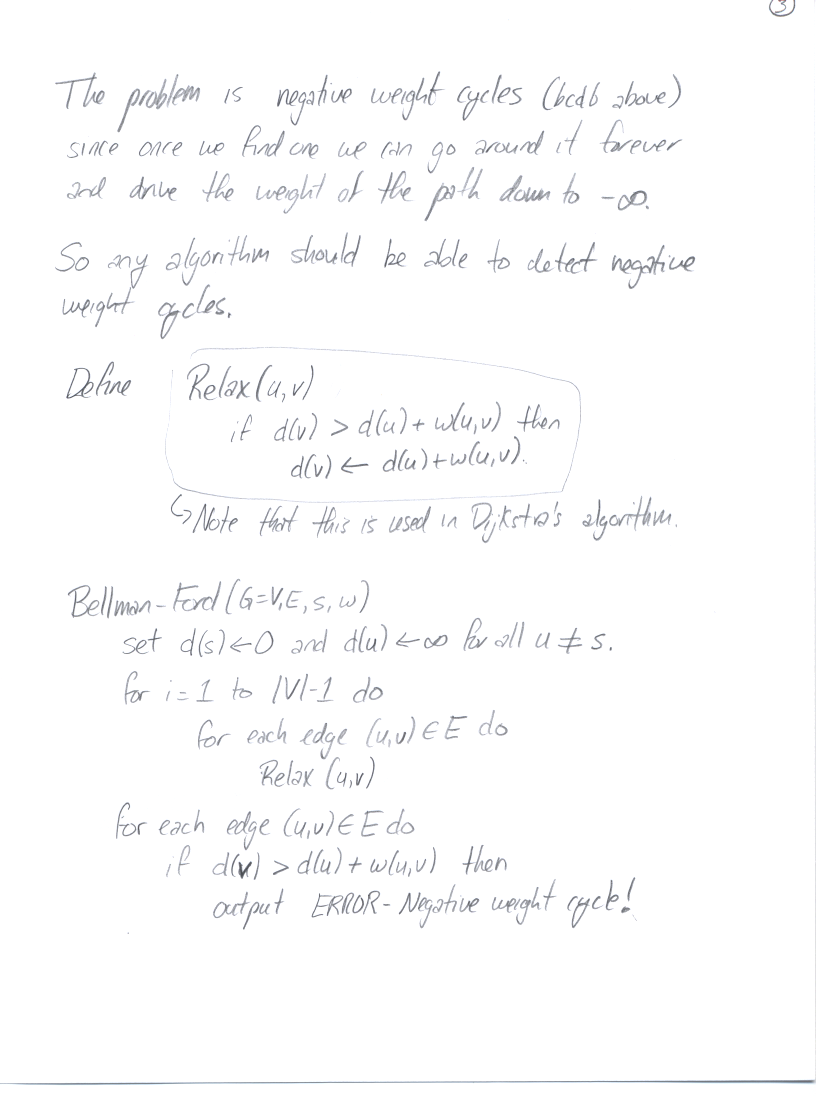 3
The problem is negative weight cycles (bcdb above)
since once we find one we can go around it forever
and drive the weight of the path down to -∞.
So any algorithm should be able to detect negative
weight cycles.
Define Relax(u,v)
if d(v) > d(u) + w(u,v) then
d(v) ← d(u)+w(u,v).
↳ Note that this is used in Dijkstra's algorithm.
Bellman-Ford (G=V,E, s, w)
set d(s)←0 and d(u)←∞ for all u ≠ s.
for i = 1 to |V|-1 do
for each edge (u,v) ∈ E do
Relax (u,v)
for each edge (u,v) ∈ E do
if d(v) > d(u) + w(u,v) then
output ERROR - Negative weight cycle!